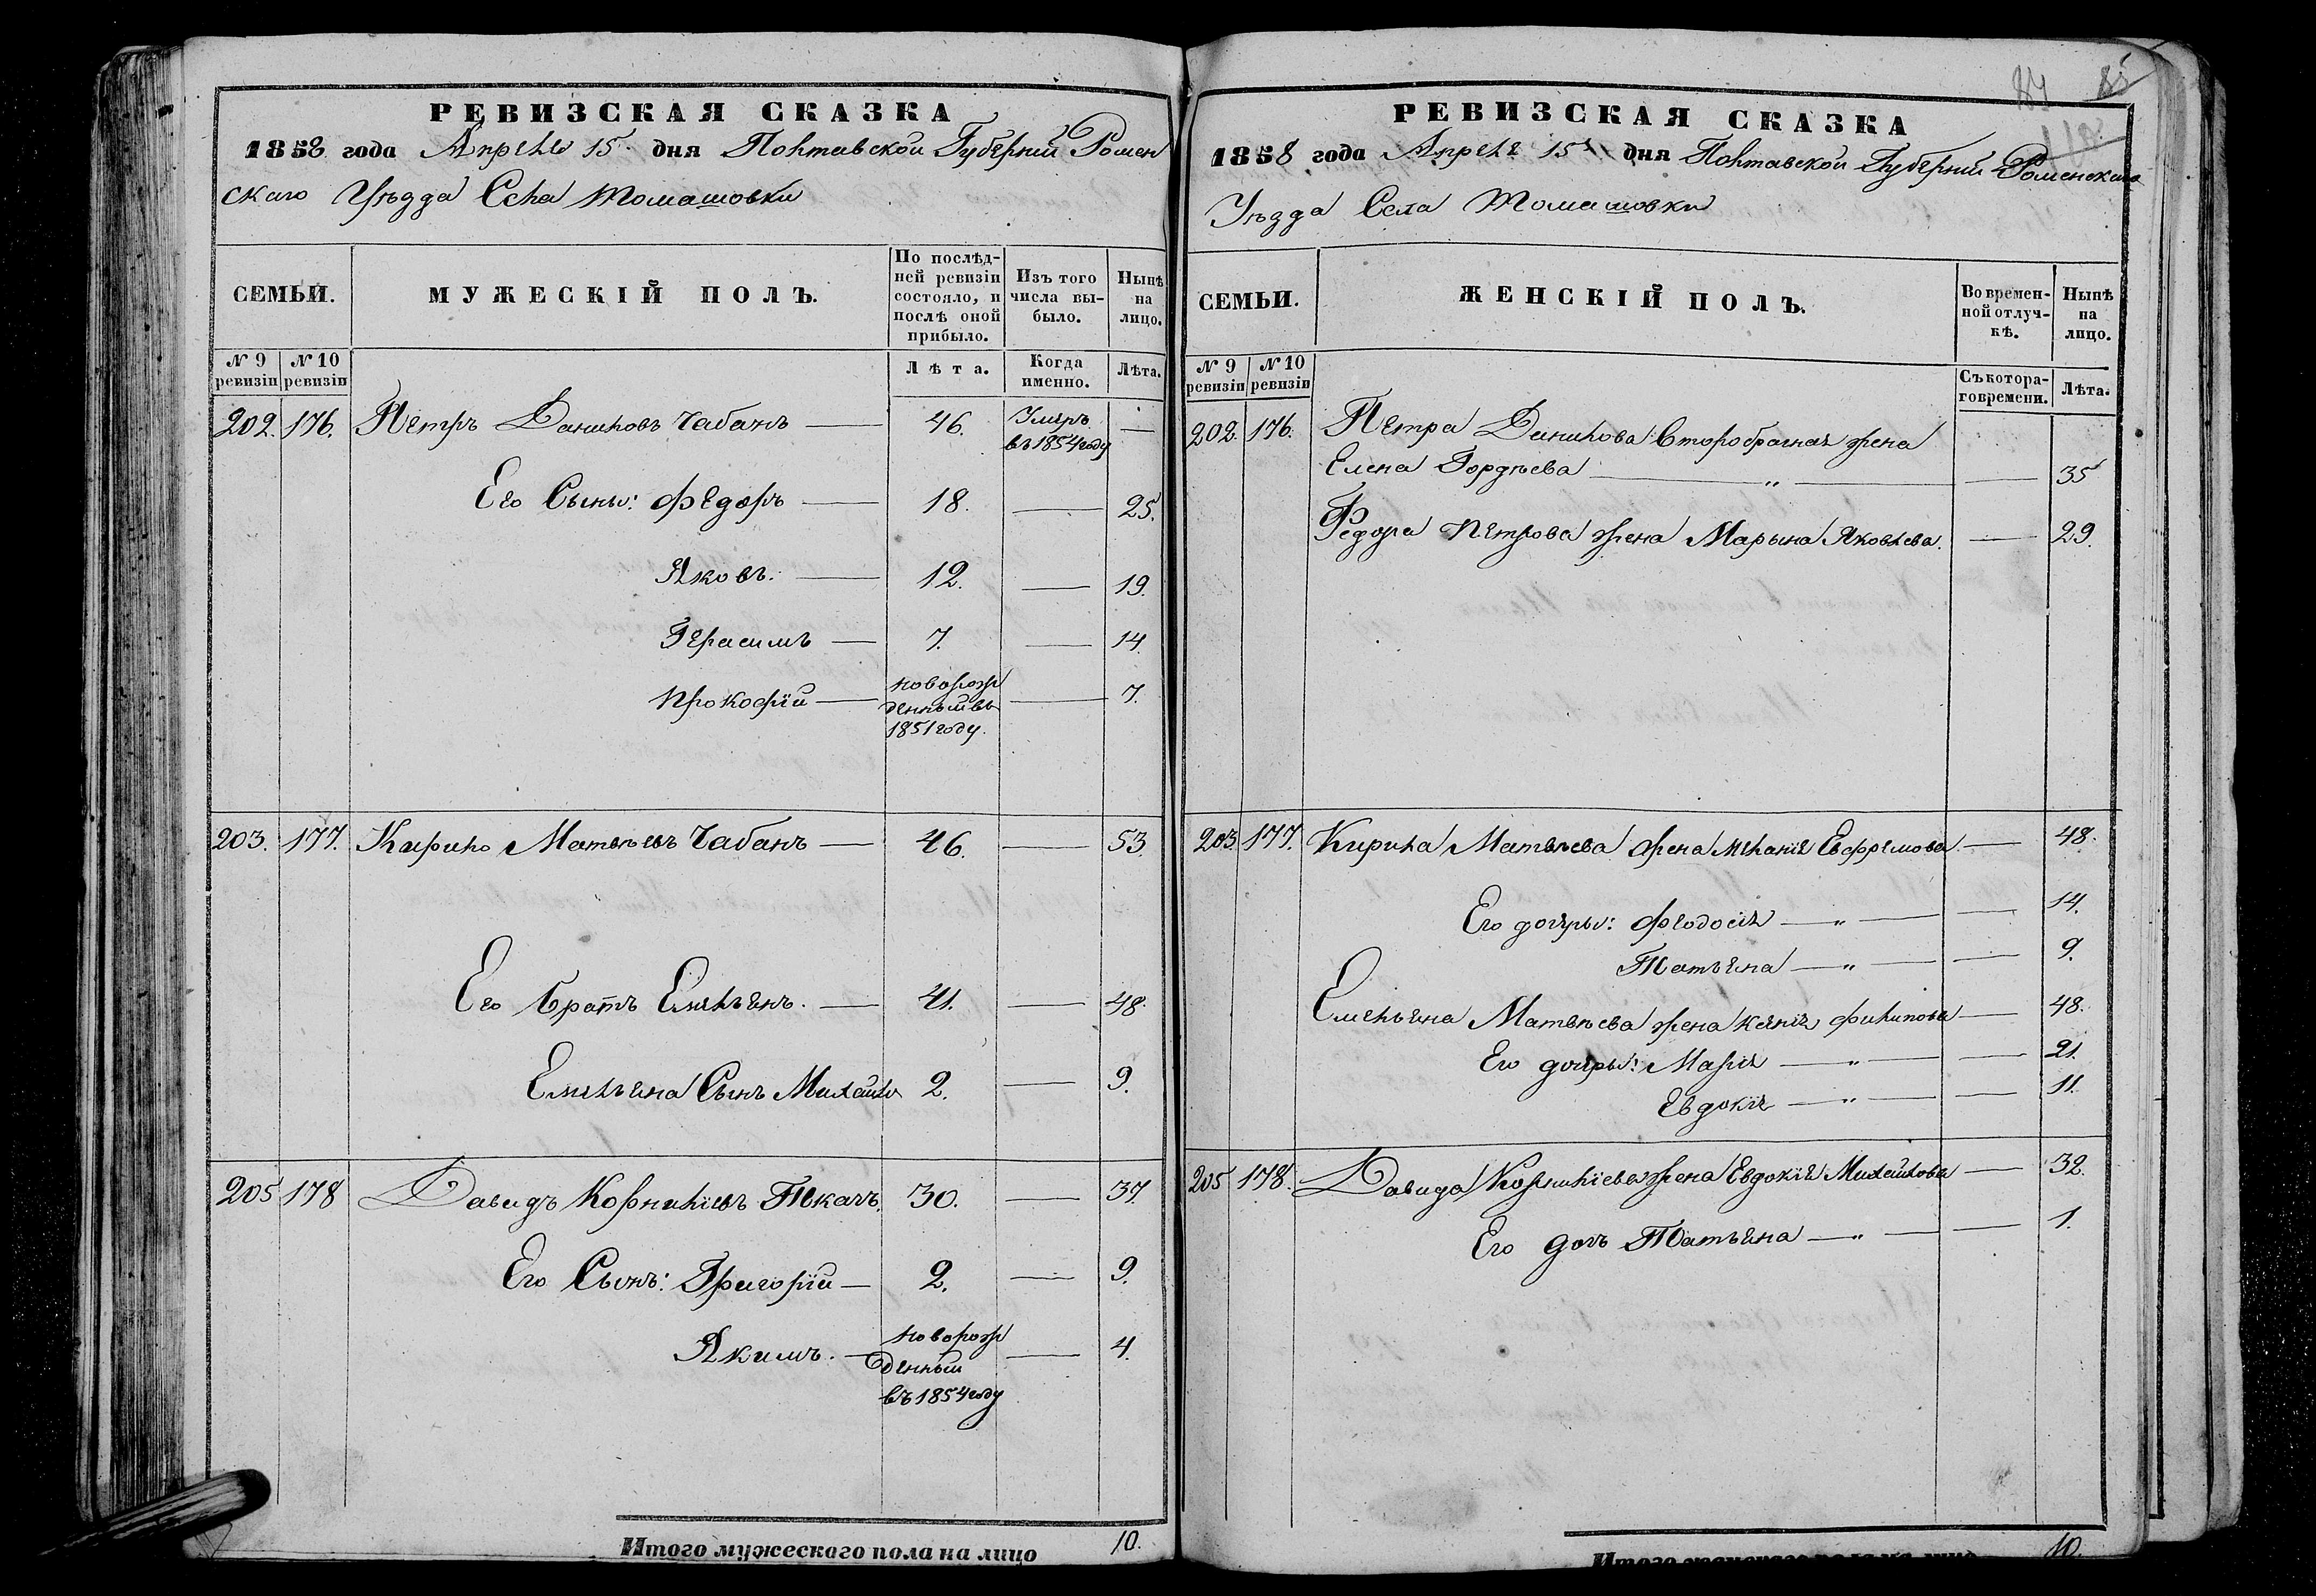 РЕВИЗСКАЯ СКАЗКА
1858 года Апреля 15 дня Полтавской Губерніи Ромен
скаго Уѣзда Села Томашовки
СЕМЬИ.
МУЖЕСКІЙ ПОЛЪ.
По послѣд-
ней ревизіи
состояло, и
послѣ оной
прибыло.
Изъ того
числа вы-
было.
Нынѣ
на
лицо.
№ 9
ревизіи
№ 10
ревизіи
Лѣта.
Когда
именно.
Лѣта.
202. 176. Петръ Даниловъ Чабанъ — 46. Умеръ въ 1854 году —
Его Сыны: Федоръ — 18. — 25.
Яковъ. — 12. — 19.
Герасимъ — 7. — 14.
Прокофій — новорож
денный въ — 7.
1851 году.
203. 177. Кирило Матвѣевъ Чабанъ — 46. — 53.
Его братъ Емельянъ. — 41. — 48.
Емельяна Сынъ Михайло 2. — 9.
205 178 Давидъ Корнилїевъ Ткачъ. 30. — 37.
Его Сынъ: Григорій — 2. — 9.
Якимъ. — новорож
денный — 4.
въ 1854 году
Итого мужескаго пола на лицо 10.
84 85
РЕВИЗСКАЯ СКАЗКА
1858 года Апреля 15 дня Полтавской Губерніи Роменскаго
Уѣзда Села Томашовки
СЕМЬИ.
ЖЕНСКІЙ ПОЛЪ.
Во времен-
ной отлуч-
кѣ.
Нынѣ
на
лицо.
№ 9
ревизіи
№ 10
ревизіи
Съ котора-
го времени.
Лѣта.
202. 176. Петра Данилова Второбрачная жена
Елена Гордѣева — „ — — 35
Федора Петрова жена Марьина Яковлева. — 29.
203 177. Кирила Матвѣева жена Меланія Евфремова — 48.
Его дочери: Феодосія — „ — — 14.
Татьяна — „ — — 9.
Емельяна Матвѣева жена Ксенія Филипова — 48.
Его дочери: Марія — „ — — 21.
Евдокія — „ — — 11.
205 178. Давида Корнилїева жена Евдокія Михайлова — 32.
Его дочь Татьяна — „ — — 1.
Итого женскаго пола на лицо 10.